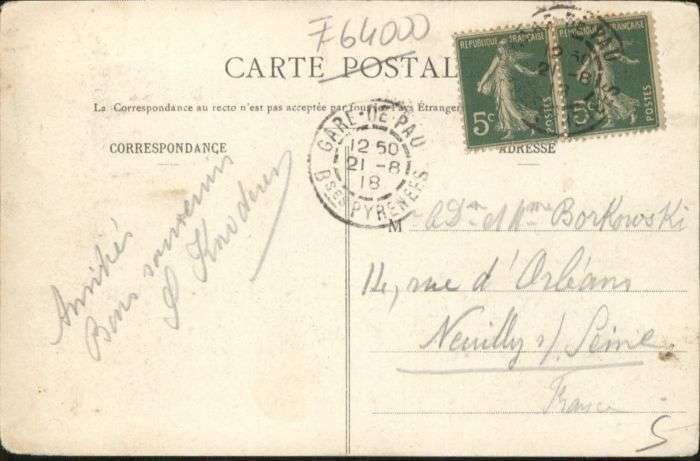 F64000
CARTE POSTAL
La Correspondance au recto n'est pas acceptée par tous les Pays Étrangers
CORRESPONDANCE
ADRESSE
RÉPUBLIQUE FRANÇAISE
5c
POSTES
POSTES
GARE-DE PAU
12 50
21 -8
18
Bses PYRENEES
PAU
Amitiés
Bons souvenirs
Mme Borkowski
14, rue d'Orléans
Neuilly s/ Seine
France
5